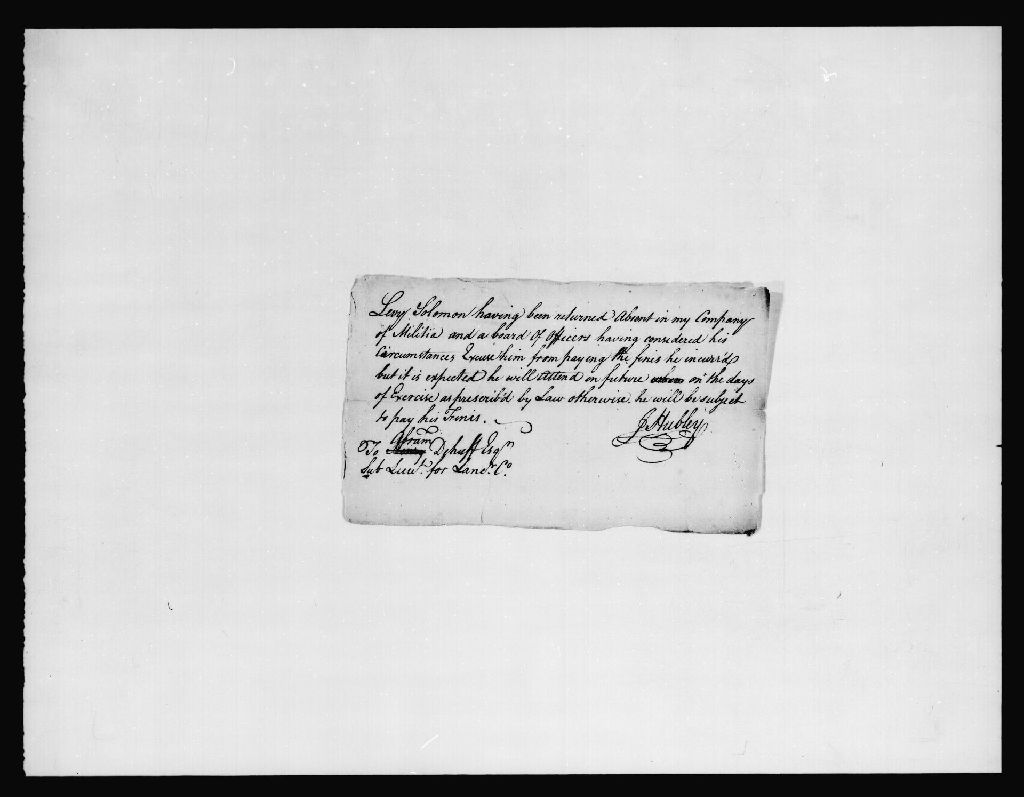 Levy Solomon having been returned Absent in my Company
of Militia and a board of officers having considered his
Circumstances Excuse him from paying the fines he incurr'd
but it is expected he will attend in future on the days
of Exercise as prescrib'd by Law otherwise he will be subject
to pay his Fines.
J Hubley
Abram
To Dehuff Esqr
Sub Lieut. for Lancr. Co.